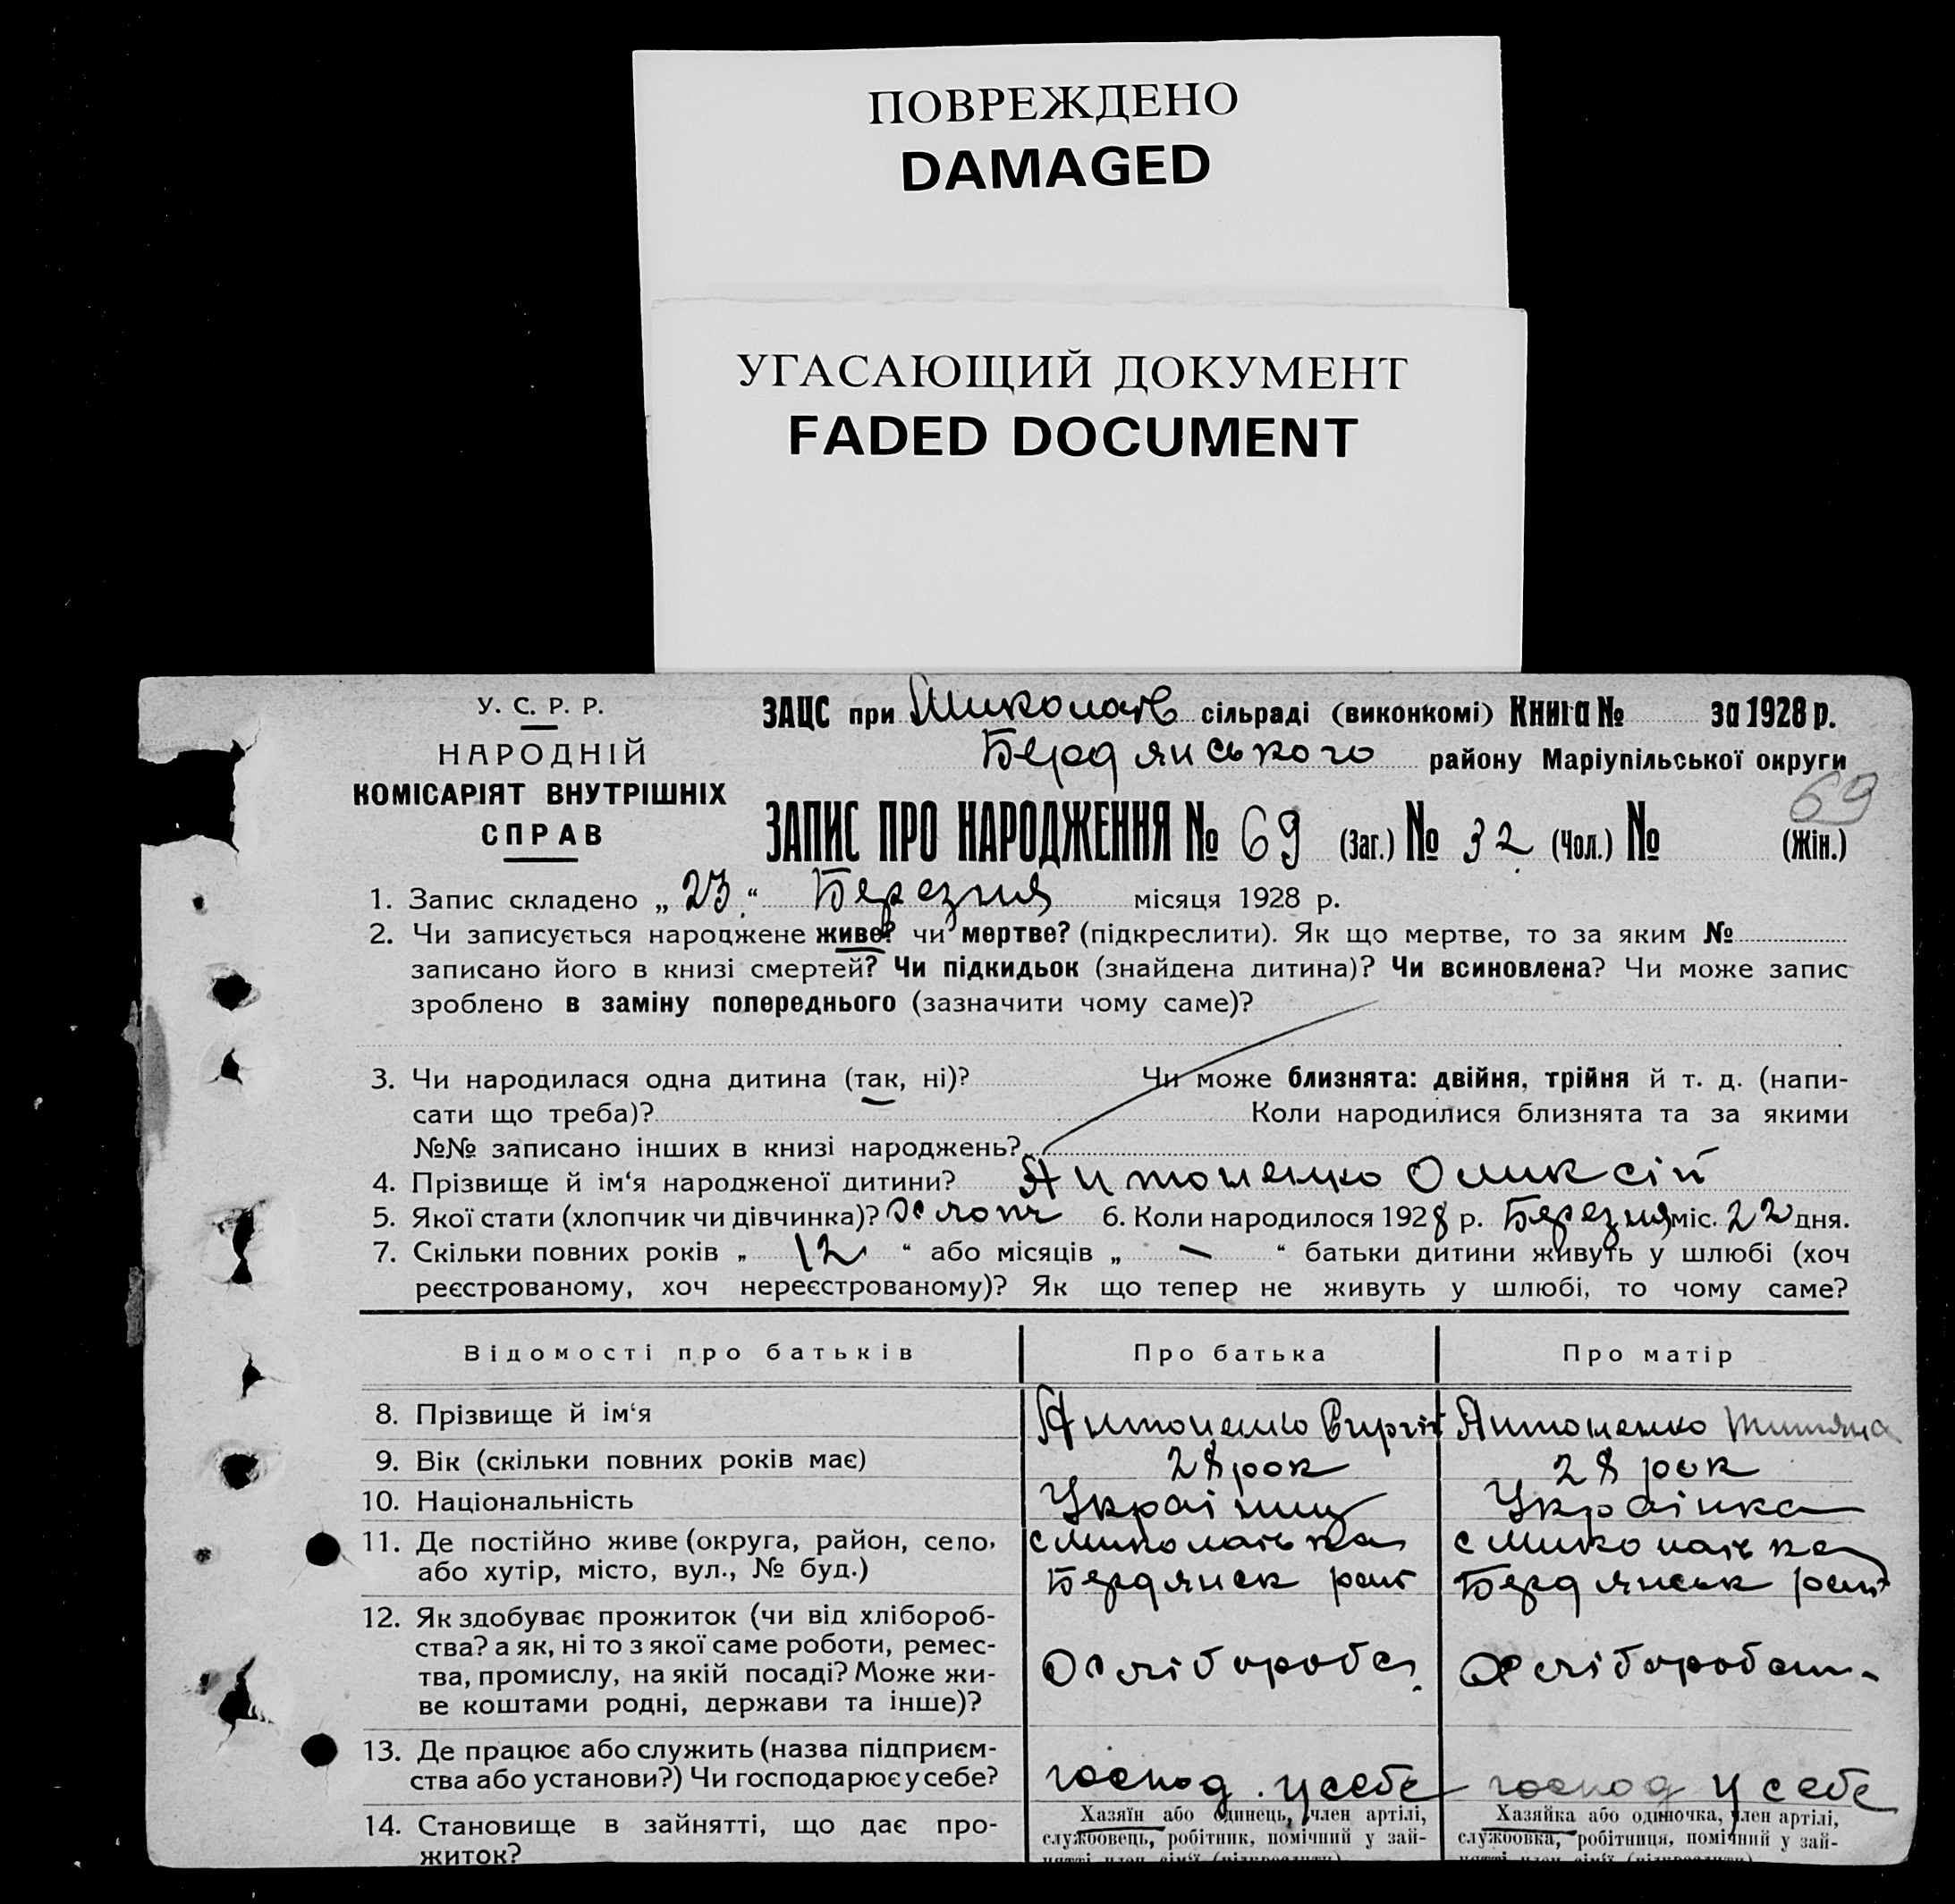 ПОВРЕЖДЕНО
DAMAGED
УГАСАЮЩИЙ ДОКУМЕНТ
FADED DOCUMENT
У. С. Р. Р.
НАРОДНІЙ
КОМІСАРІЯТ ВНУТРІШНІХ
СПРАВ
ЗАЦС при Миколаїв сільраді (виконкомі) Книга № за 1928 р.
Бердянського району Маріупільської округи
69
ЗАПИС ПРО НАРОДЖЕННЯ № 69 (Заг.) № 32 (Чол.) № (Жін.)
1. Запис складено „ 23 “ Березня місяця 1928 р.
2. Чи записується народжене живе? чи мертве? (підкреслити). Як що мертве, то за яким №
записано його в книзі смертей? Чи підкидьок (знайдена дитина)? Чи всиновлена? Чи може запис
зроблено в заміну попереднього (зазначити чому саме)?
3. Чи народилася одна дитина (так, ні)? Чи може близнята: двійня, трійня й т. д. (напи-
сати що треба)? Коли народилися близнята та за якими
№№ записано інших в книзі народжень?
4. Прізвище й ім‘я народженої дитини? Антоненко Оликсій
5. Якої стати (хлопчик чи дівчинка)? Хлопч 6. Коли народилося 1928 р. Березня міс. 22 дня.
7. Скільки повних років „ 12 “ або місяців „ — “ батьки дитини живуть у шлюбі (хоч
реєстрованому, хоч нереєстрованому)? Як що тепер не живуть у шлюбі, то чому саме?
Відомості про батьків Про батька Про матір
8. Прізвище й ім‘я Антоненко Антоненко
9. Вік (скільки повних років має) 28 рок 28 рок
10. Національність Українц Українка
11. Де постійно живе (округа, район, село, с Миколаївка с Миколаївка
або хутір, місто, вул., № буд.) Бердянск рай Бердянськ рай
12. Як здобуває прожиток (чи від хлібороб-
ства? а як, ні то з якої саме роботи, ремес-
тва, промислу, на якій посаді? Може жи- Хлібороба Хлібороб
ве коштами родні, держави та інше)?
13. Де працює або служить (назва підприєм-
ства або установи?) Чи господарює у себе? господ. у себе господ у себе
14. Становище в зайнятті, що дає про- Хазяїн або одинець, член артілі, Хазяйка або одиночка, член артілі,
житок? службовець, робітник, помічний у зай- службовка, робітниця, помічний у зай-